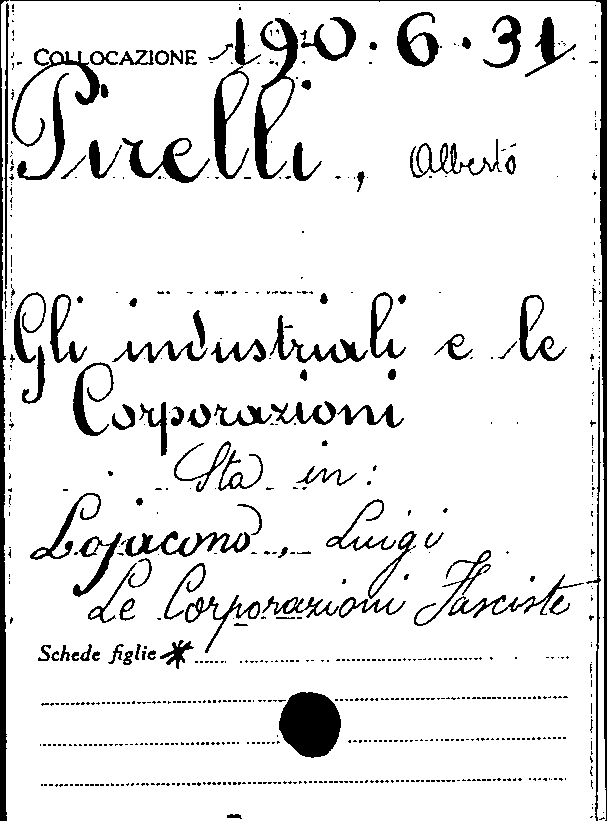 COLLOCAZIONE 190.6.31
Pirelli, Alberto
Gli industriali e le
Corporazioni
Sta in:
Lojacono, Luigi
Le Corporazioni Fasciste
Schede figlie *